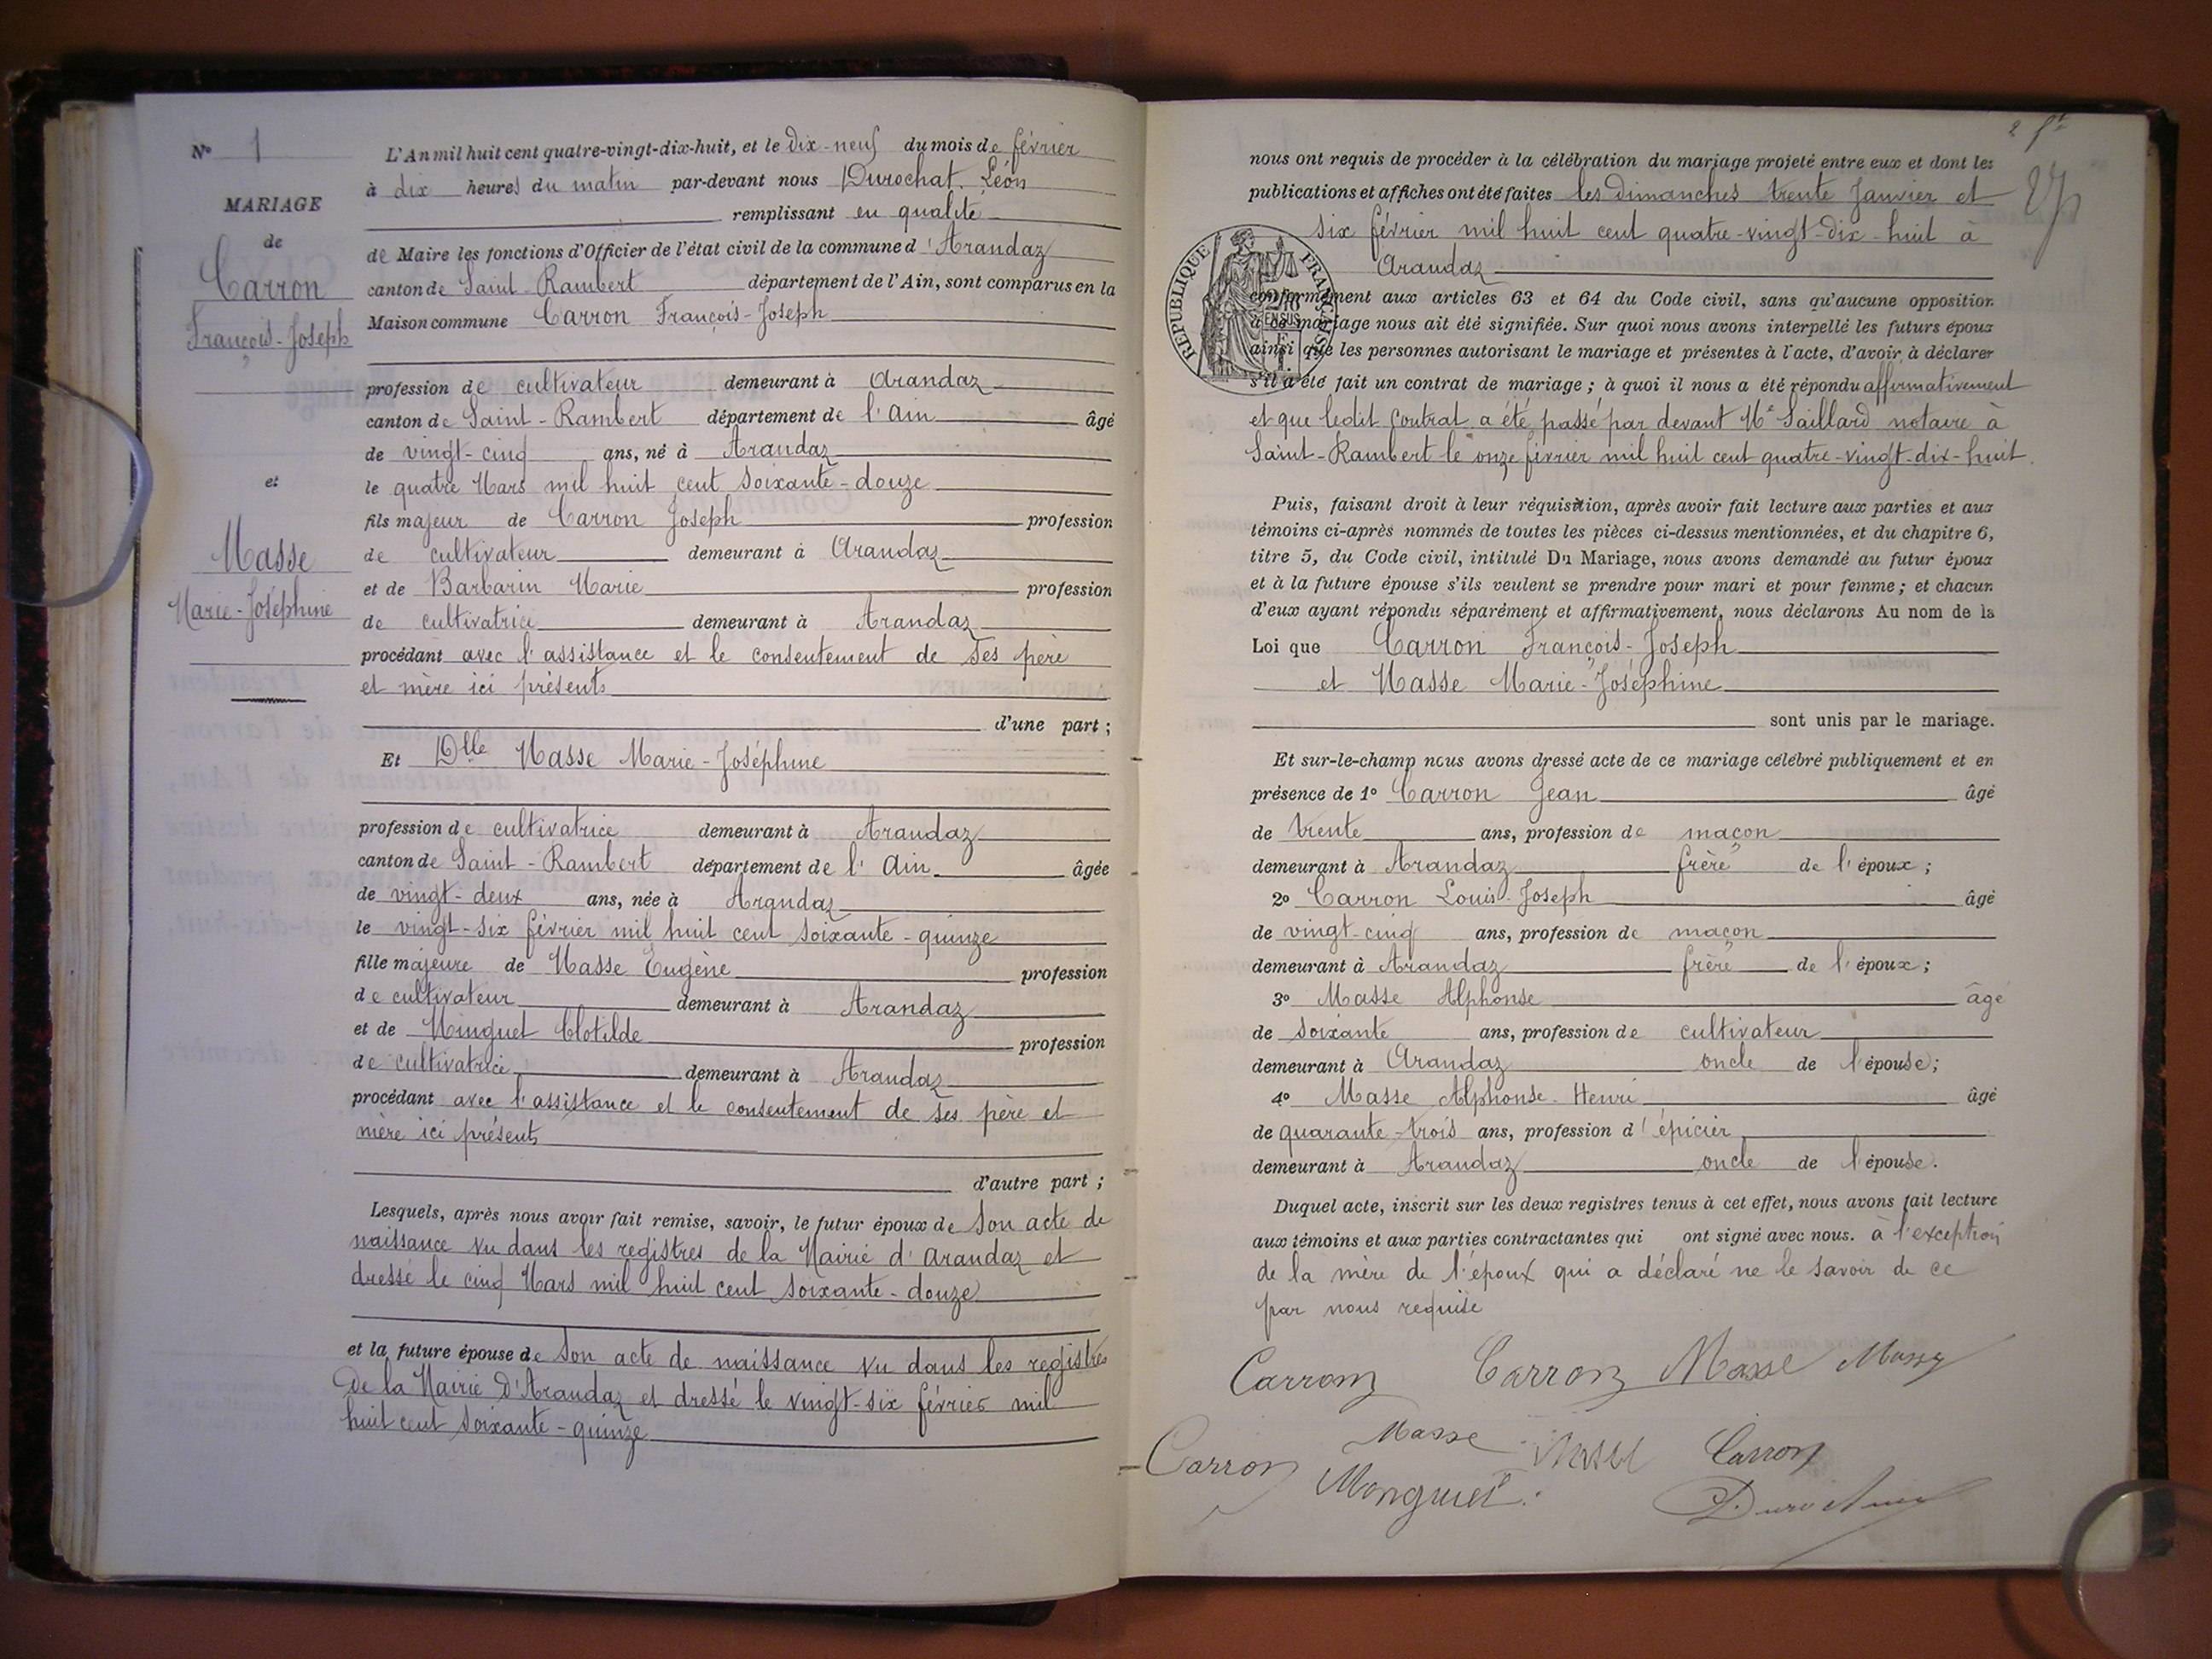 N° 1
MARIAGE
de
Carron
François-Joseph
et
Masse
Marie-Joséphine
L'An mil huit cent quatre-vingt-dix-huit, et le dix-neuf du mois de février
à dix heures du matin par-devant nous Durochat Léon
remplissant en qualité
de Maire les fonctions d'Officier de l'état civil de la commune d'Arandaz
canton de Saint-Rambert département de l'Ain, sont comparus en la
Maison commune Carron François-Joseph
profession de cultivateur demeurant à Arandaz
canton de Saint-Rambert département de l'Ain âgé
de vingt-cinq ans, né à Arandaz
le quatre Mars mil huit cent soixante-douze
fils majeur de Carron Joseph profession
de cultivateur demeurant à Arandaz
et de Barbarin Marie profession
de cultivatrice demeurant à Arandaz
procédant avec l'assistance et le consentement de ses père
et mère ici présents
d'une part ;
Et Dlle Masse Marie-Joséphine
profession de cultivatrice demeurant à Arandaz
canton de Saint-Rambert département de l'Ain âgée
de vingt-deux ans, née à Arandaz
le vingt-six février mil huit cent soixante-quinze
fille majeure de Masse Eugène profession
de cultivateur demeurant à Arandaz
et de Minguet Clotilde profession
de cultivatrice demeurant à Arandaz
procédant avec l'assistance et le consentement de ses père et
mère ici présents
d'autre part ;
Lesquels, après nous avoir fait remise, savoir, le futur époux de son acte de
naissance vu dans les registres de la Mairie d'Arandaz et
dressé le cinq Mars mil huit cent soixante-douze
et la future épouse de son acte de naissance vu dans les registres
de la Mairie d'Arandaz et dressé le vingt-six février mil
huit cent soixante-quinze
nous ont requis de procéder à la célébration du mariage projeté entre eux et dont les
publications et affiches ont été faites les dimanches trente Janvier et
six février mil huit cent quatre-vingt-dix-huit à
Arandaz
REPUBLIQUE FRANÇAISE
conformément aux articles 63 et 64 du Code civil, sans qu'aucune opposition
à ce mariage nous ait été signifiée. Sur quoi nous avons interpellé les futurs époux
ainsi que les personnes autorisant le mariage et présentes à l'acte, d'avoir à déclarer
s'il a été fait un contrat de mariage ; à quoi il nous a été répondu affirmativement
et que ledit contrat a été passé par devant Me Saillard notaire à
Saint-Rambert le onze février mil huit cent quatre-vingt-dix-huit.
Puis, faisant droit à leur réquisition, après avoir fait lecture aux parties et aux
témoins ci-après nommés de toutes les pièces ci-dessus mentionnées, et du chapitre 6,
titre 5, du Code civil, intitulé Du Mariage, nous avons demandé au futur époux
et à la future épouse s'ils veulent se prendre pour mari et pour femme ; et chacun
d'eux ayant répondu séparément et affirmativement, nous déclarons Au nom de la
Loi que Carron François-Joseph
et Masse Marie-Joséphine
sont unis par le mariage.
Et sur-le-champ nous avons dressé acte de ce mariage célébré publiquement et en
présence de 1° Carron Jean âgé
de trente ans, profession de maçon
demeurant à Arandaz frère de l'époux ;
2° Carron Louis-Joseph âgé
de vingt-cinq ans, profession de maçon
demeurant à Arandaz frère de l'époux ;
3° Masse Alphonse âgé
de soixante ans, profession de cultivateur
demeurant à Arandaz oncle de l'épouse ;
4° Masse Alphonse-Henri âgé
de quarante-trois ans, profession d'épicier
demeurant à Arandaz oncle de l'épouse.
Duquel acte, inscrit sur les deux registres tenus à cet effet, nous avons fait lecture
aux témoins et aux parties contractantes qui ont signé avec nous. à l'exception
de la mère de l'époux qui a déclaré ne le savoir de ce
par nous requise
Carron Carron Masse Masse
Masse Masse Carron
Carron Monguet
Durochat